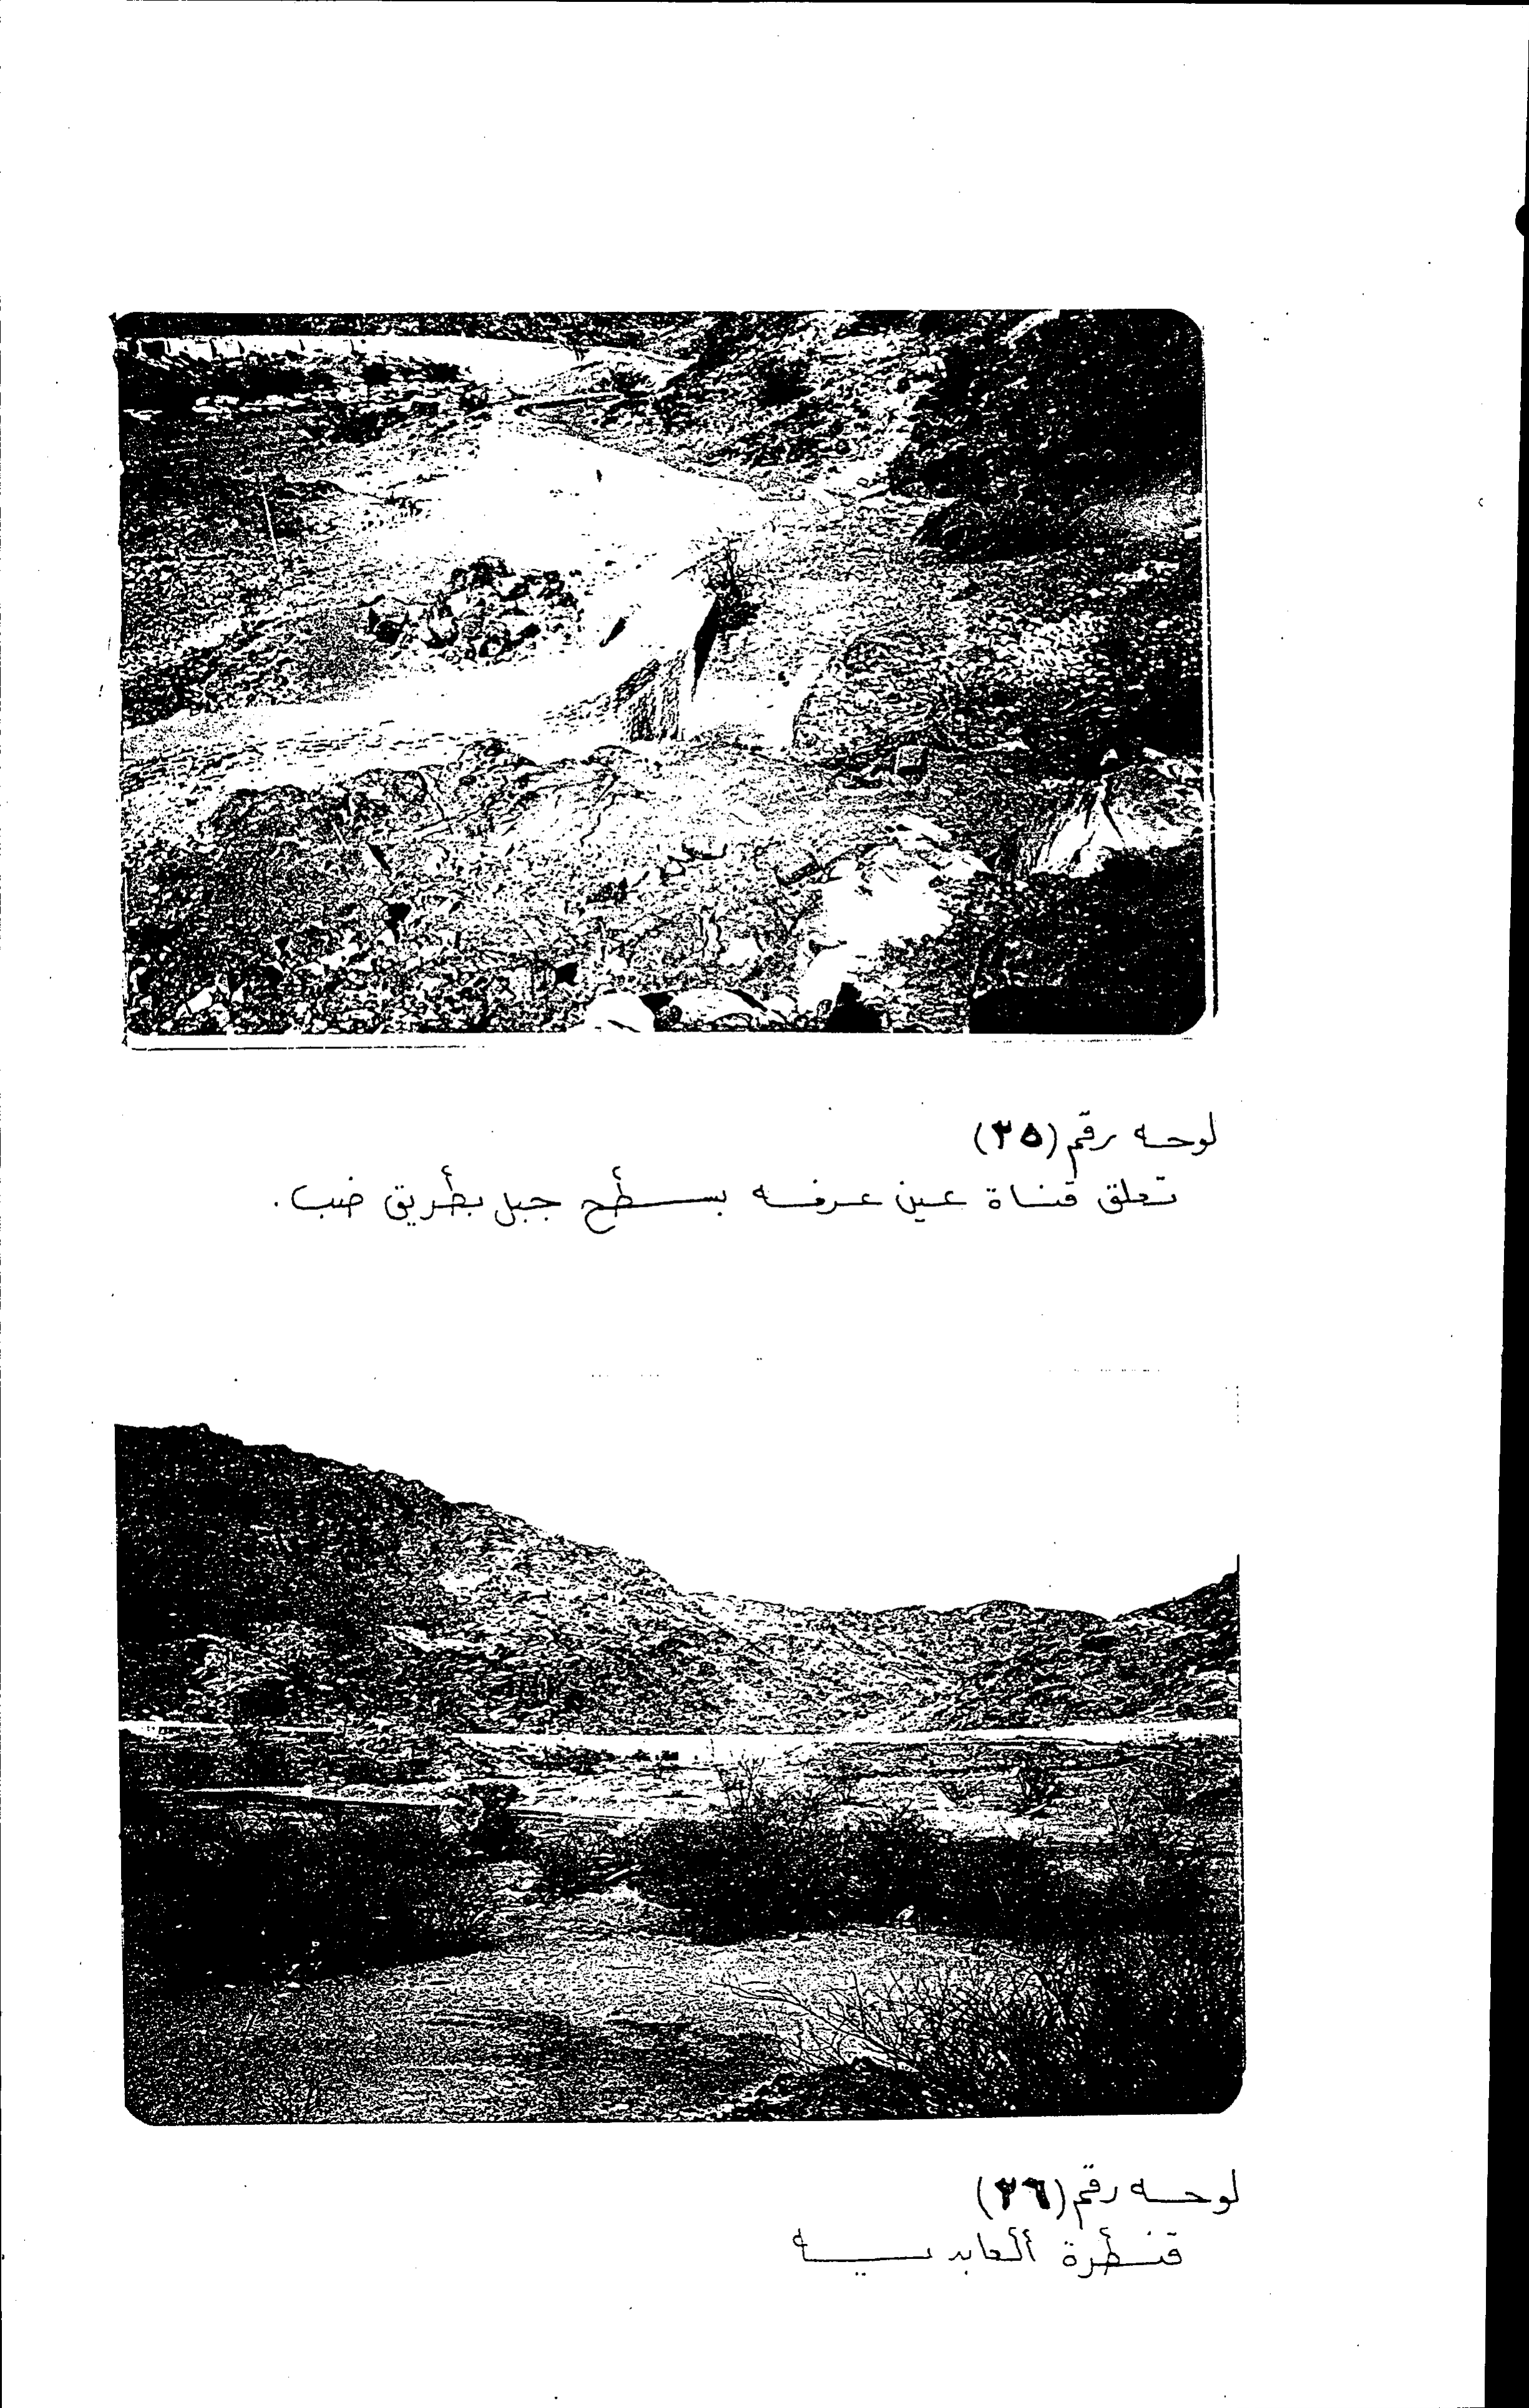 لوحه رقم (٢٥)
تعلق قناة عين عرفه بسطح جبل بطريق ضب.
لوحه رقم (٢٦)
قنطرة العابديه